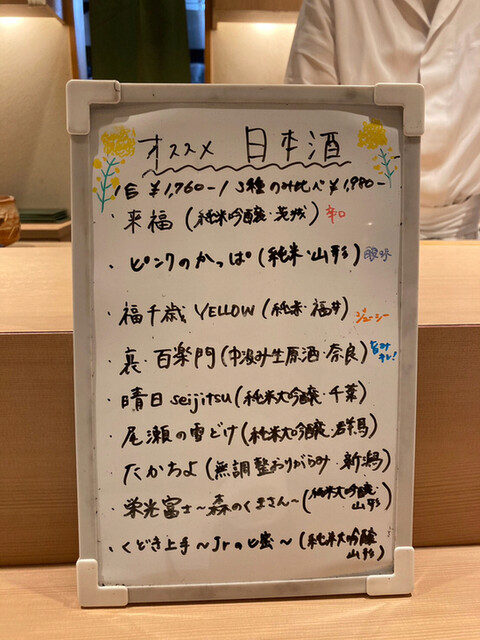 オススメ 日本酒
1合 ¥1,760- / 3種のみ比べ ¥1,980-
・来福(純米吟醸・茨城) 辛口
・ピンクのかっぱ(純米・山形)
・福千歳 YELLOW(純米・福井) ジューシー
・裏・百楽門(中汲み生原酒・奈良) 旨み キレ!
・晴日 seijitsu(純米大吟醸・千葉)
・尾瀬の雪どけ(純米大吟醸・群馬)
・たかちよ(無調整おりがらみ・新潟)
・栄光冨士〜森のくまさん〜(純米大吟醸・山形)
・くどき上手〜Jrのヒ蜜〜(純米大吟醸・山形)